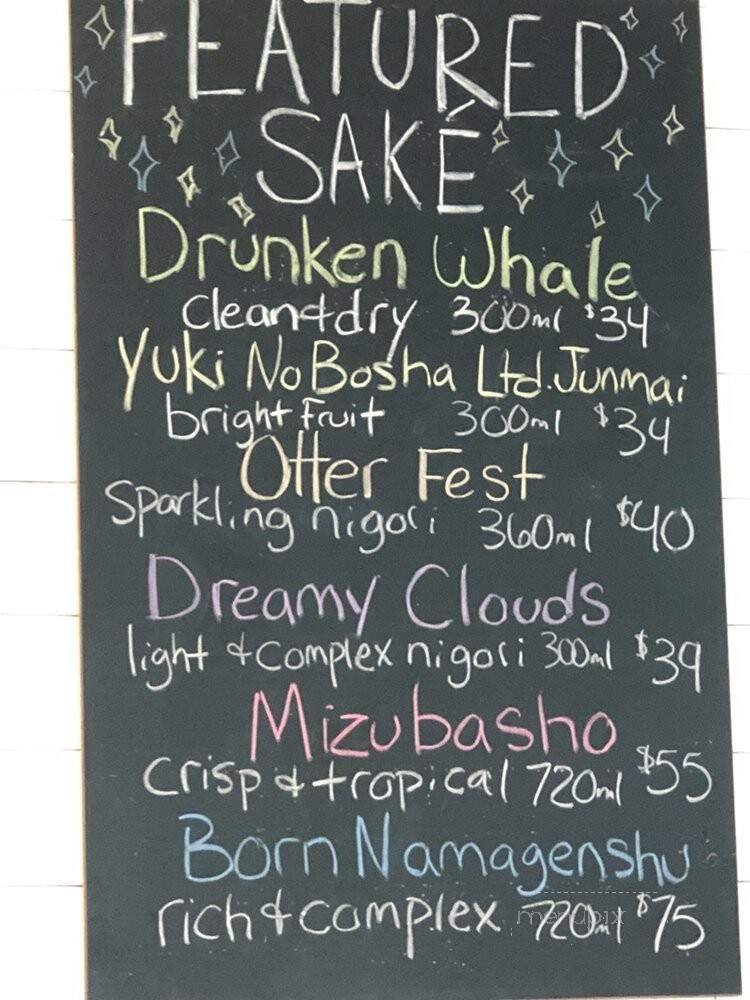 FEATURED
SAKÉ
Drunken Whale
Clean & dry 300ml $34
Yuki No Bosha Ltd. Junmai
bright fruit 300ml $34
Otter Fest
Sparkling nigori 360ml $40
Dreamy Clouds
light & complex nigori 300ml $39
Mizubasho
crisp & tropical 720ml $55
Born Namagenshu
rich & complex 720ml $75
menupix